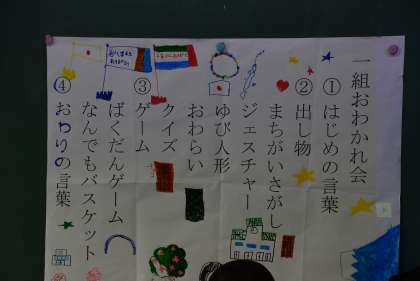 一組おわかれ会
①はじめの言葉
②出し物
まちがいさがし
ジェスチャー
ゆび人形
おわらい
クイズ
③ゲーム
ばくだんゲーム
なんでもバスケット
④おわりの言葉